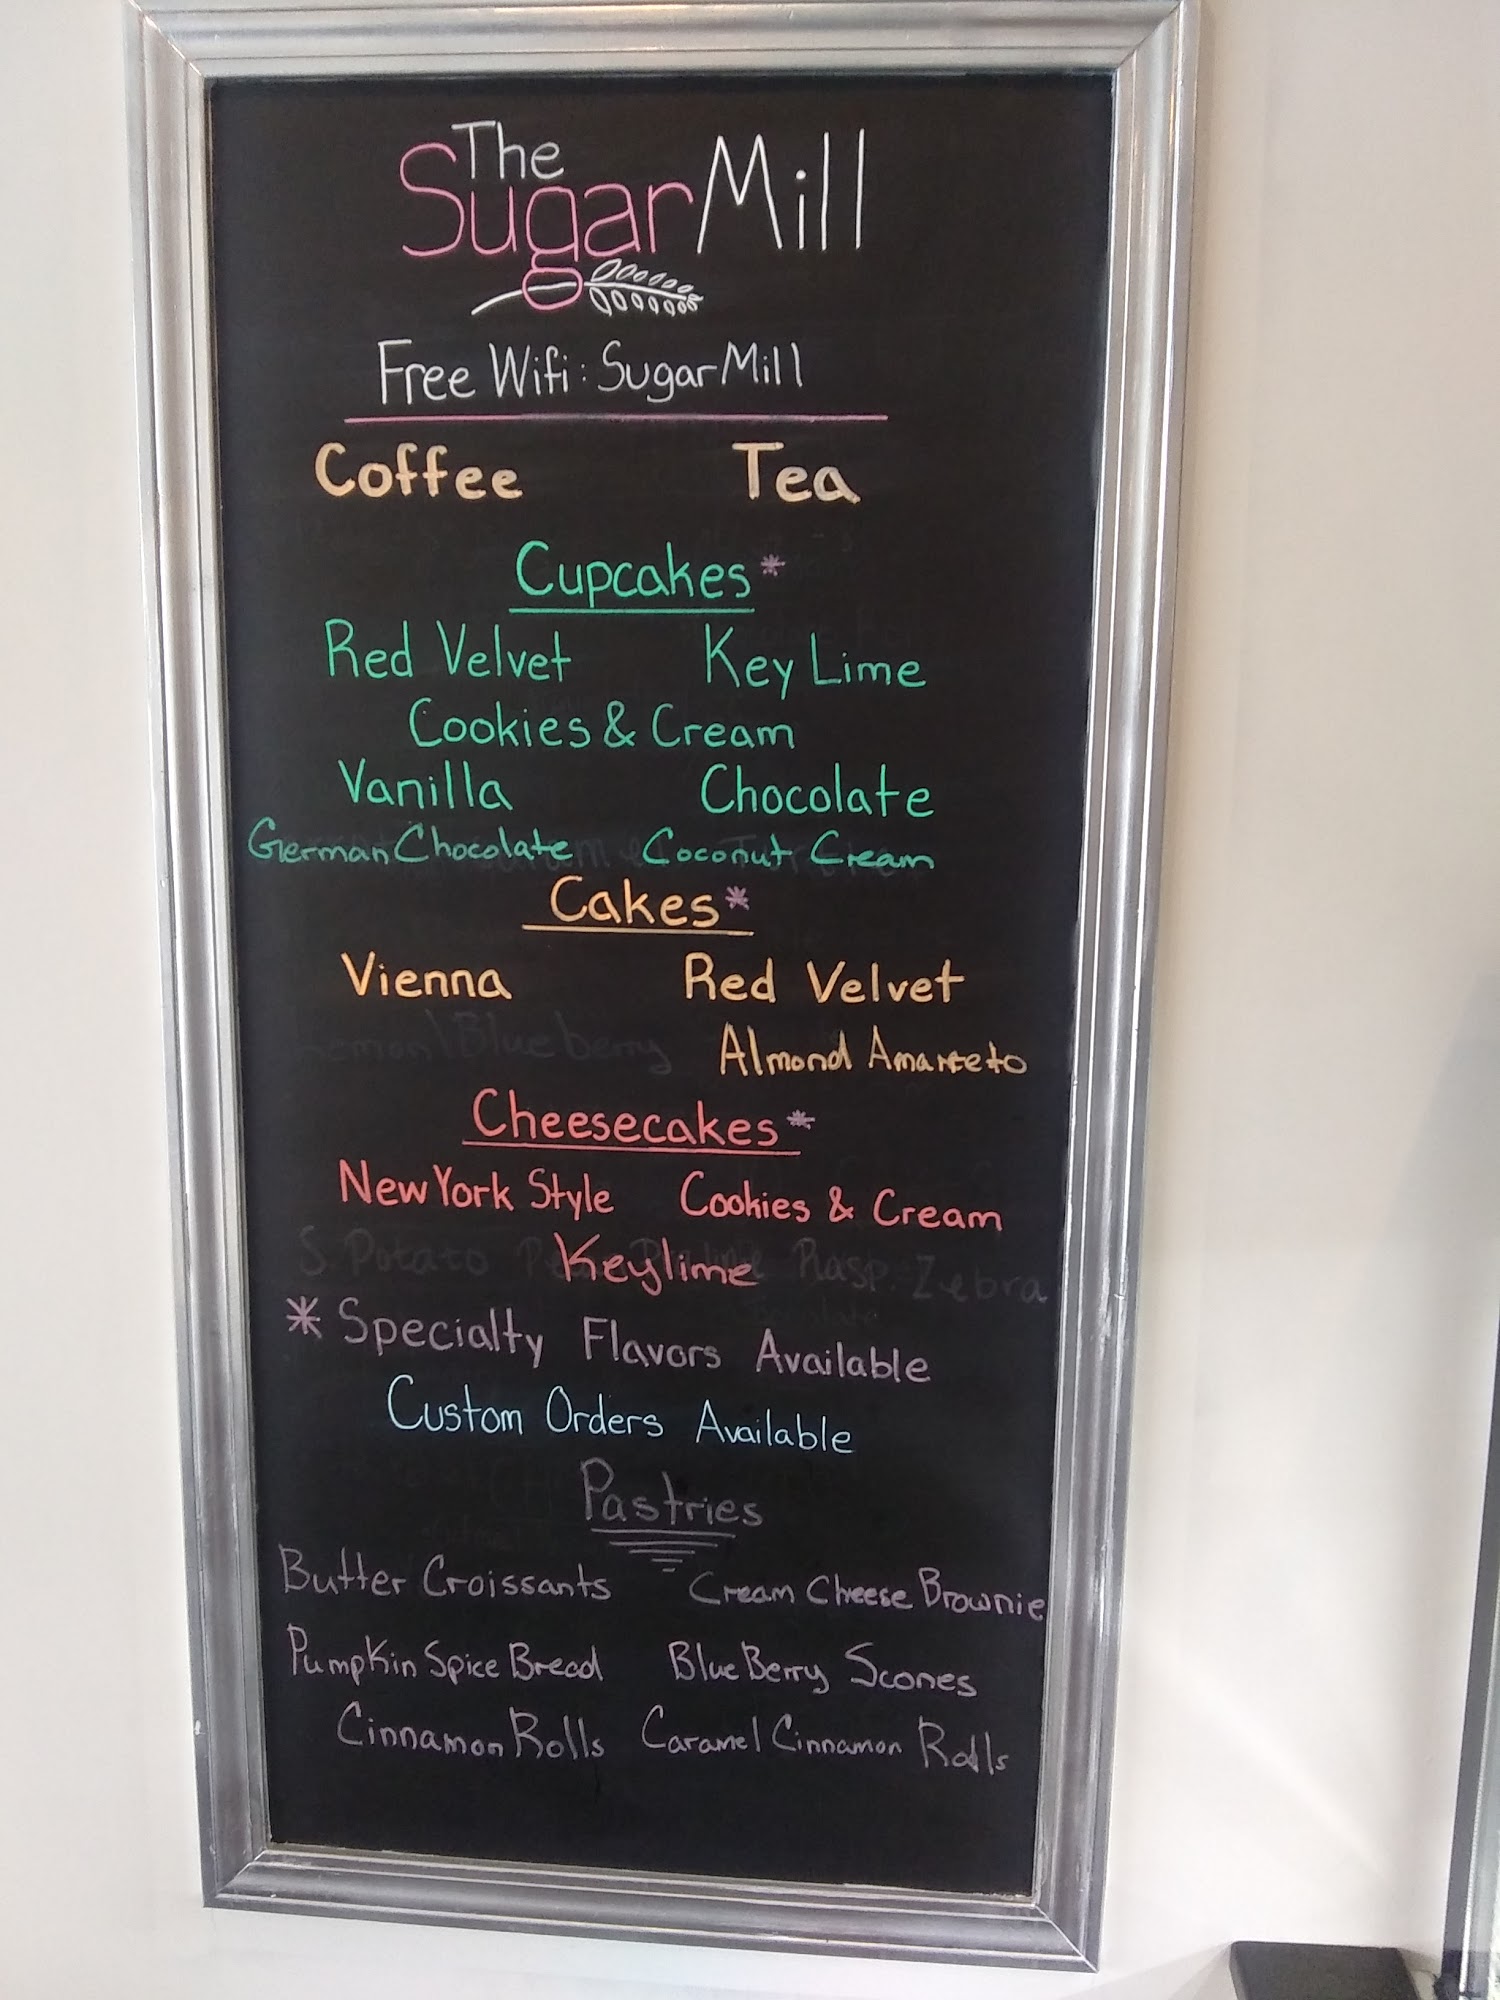 The
Sugar Mill
Free Wifi: SugarMill
Coffee Tea
Cupcakes*
Red Velvet Key Lime
Cookies & Cream
Vanilla Chocolate
German Chocolate Coconut Cream
Cakes*
Vienna Red Velvet
Lemon\Blueberry Almond Amareeto
Cheesecakes*
New York Style Cookies & Cream
S. Potato Keylime Rasp. Zebra
* Specialty Flavors Available
Custom Orders Available
Pastries
Butter Croissants Cream Cheese Brownie
Pumpkin Spice Bread BlueBerry Scones
Cinnamon Rolls Caramel Cinnamon Rolls